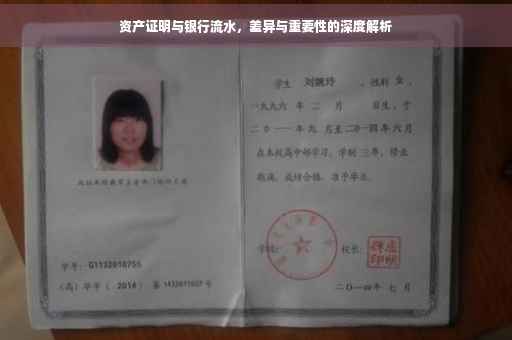 资产证明与银行流水，差异与重要性的深度解析
学生 刘婉玲 ，性别 女 ，
一九九六 年 二 月 日生，于
二〇一一年九 月至二〇一四年六月
在本校高中部学习，学制 三年，修业
期满，成绩合格，准予毕业。
学号：G1132010755
（高）毕字（ 2014 ）第 1432011027 号
学校： 校长：
二〇一四年 七 月